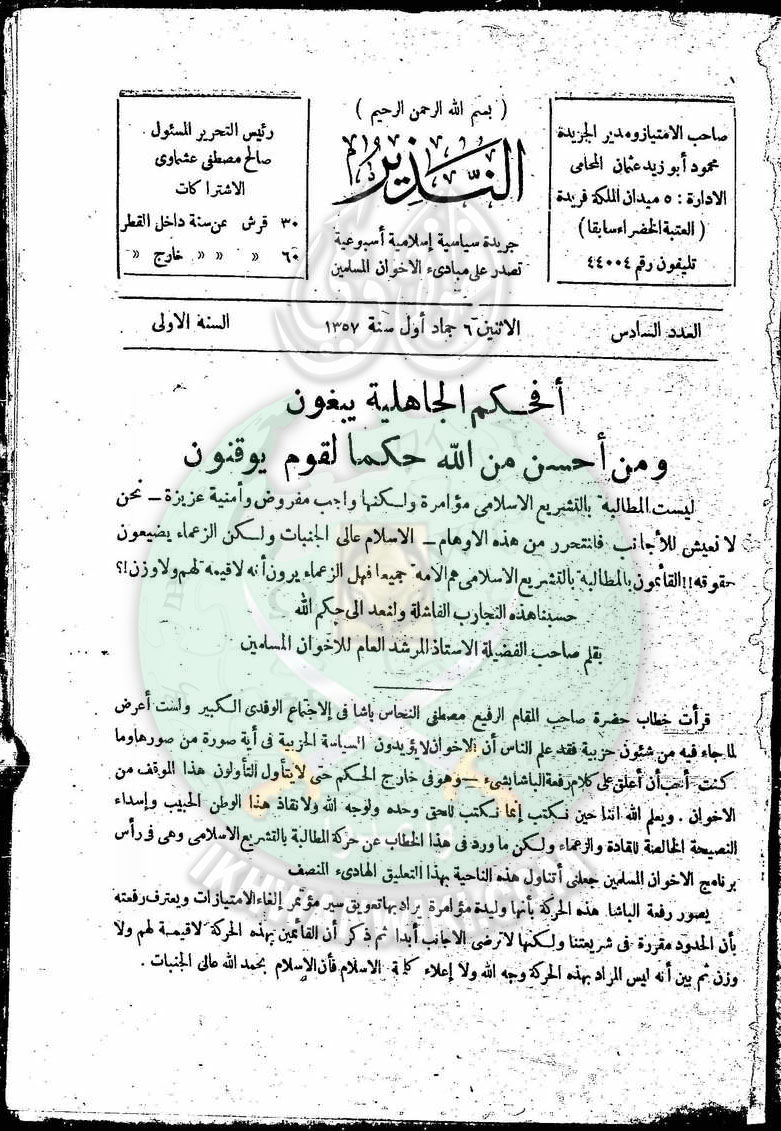 ( بسم الله الرحمن الرحيم )
النذير
جريدة سياسية إسلامية أسبوعية
تصدر على مبادىء الاخوان المسلمين
صاحب الامتياز ومدير الجريدة
محمود أبو زيد عثمان المحامى
الادارة : ٥ ميدان الملكة فريدة
( العتبة الخضراء سابقا )
تليفون رقم ٤٤٠٠٤
رئيس التحرير المسئول
صالح مصطفى عشماوى
الاشتراكات
٣٠ قرش عن سنة داخل القطر
٦٠ » » » خارج »
العدد السادس
الاثنين ٦ جماد أول سنة ١٣٥٧
السنة الاولى
أفحكم الجاهلية يبغون
ومن أحسن من الله حكما لقوم يوقنون
ليست المطالبة بالتشريع الاسلامى مؤامرة ولكنها واجب مفروض وأمنية عزيزة – نحن
لا نعيش للأجانب فلنتحرر من هذه الاوهام – الاسلام عالى الجنبات ولكن الزعماء يضيعون
حقوقه !! القائمون بالمطالبة بالتشريع الاسلامى هم الامة جميعا فهل الزعماء يرون أنه لا قيمة لهم ولا وزن !؟
حسبنا هذه التجارب الفاشلة ولنعد الى حكم الله
بقلم صاحب الفضيلة الاستاذ المرشد العام للاخوان المسلمين
قرأت خطاب حضرة صاحب المقام الرفيع مصطفى النحاس باشا فى الاجتماع الوفدى الكبير ولست أعرض
لما جاء فيه من شئون حزبية فقد علم الناس أن الاخوان لا يؤيدون السياسة الحزبية فى أية صورة من صورها وما
كنت أحب أن أعلق على كلام رفعة الباشا بشىء – وهو فى خارج الحكم حتى لا يتأول المتأولون هذا الموقف من
الاخوان . ويعلم الله اننا حين نكتب إنما نكتب للحق وحده ولوجه الله ولانقاذ هذا الوطن الحبيب وإسداء
النصيحة الخالصة للقادة والزعماء ولكن ما ورد فى هذا الخطاب عن حركة المطالبة بالتشريع الاسلامى وهى فى رأس
برنامج الاخوان المسلمين جعلنى أتناول هذه الناحية بهذا التعليق الهادىء المنصف
يصور رفعة الباشا هذه الحركة بأنها وليدة مؤامرة يراد بها تعويق سير مؤتمر إلغاء الامتيازات ويعترف رفعته
بأن الحدود مقررة فى شريعتنا ولكنها لا ترضى الاجانب أبدا ثم ذكر أن القائمين بهذه الحركة لا قيمة لهم ولا
وزن ثم بين أنه ليس المراد بهذه الحركة وجه الله ولا إعلاء كلمة الاسلام فأن الاسلام بحمد الله عالى الجنبات .
IKHWANWIKI.COM